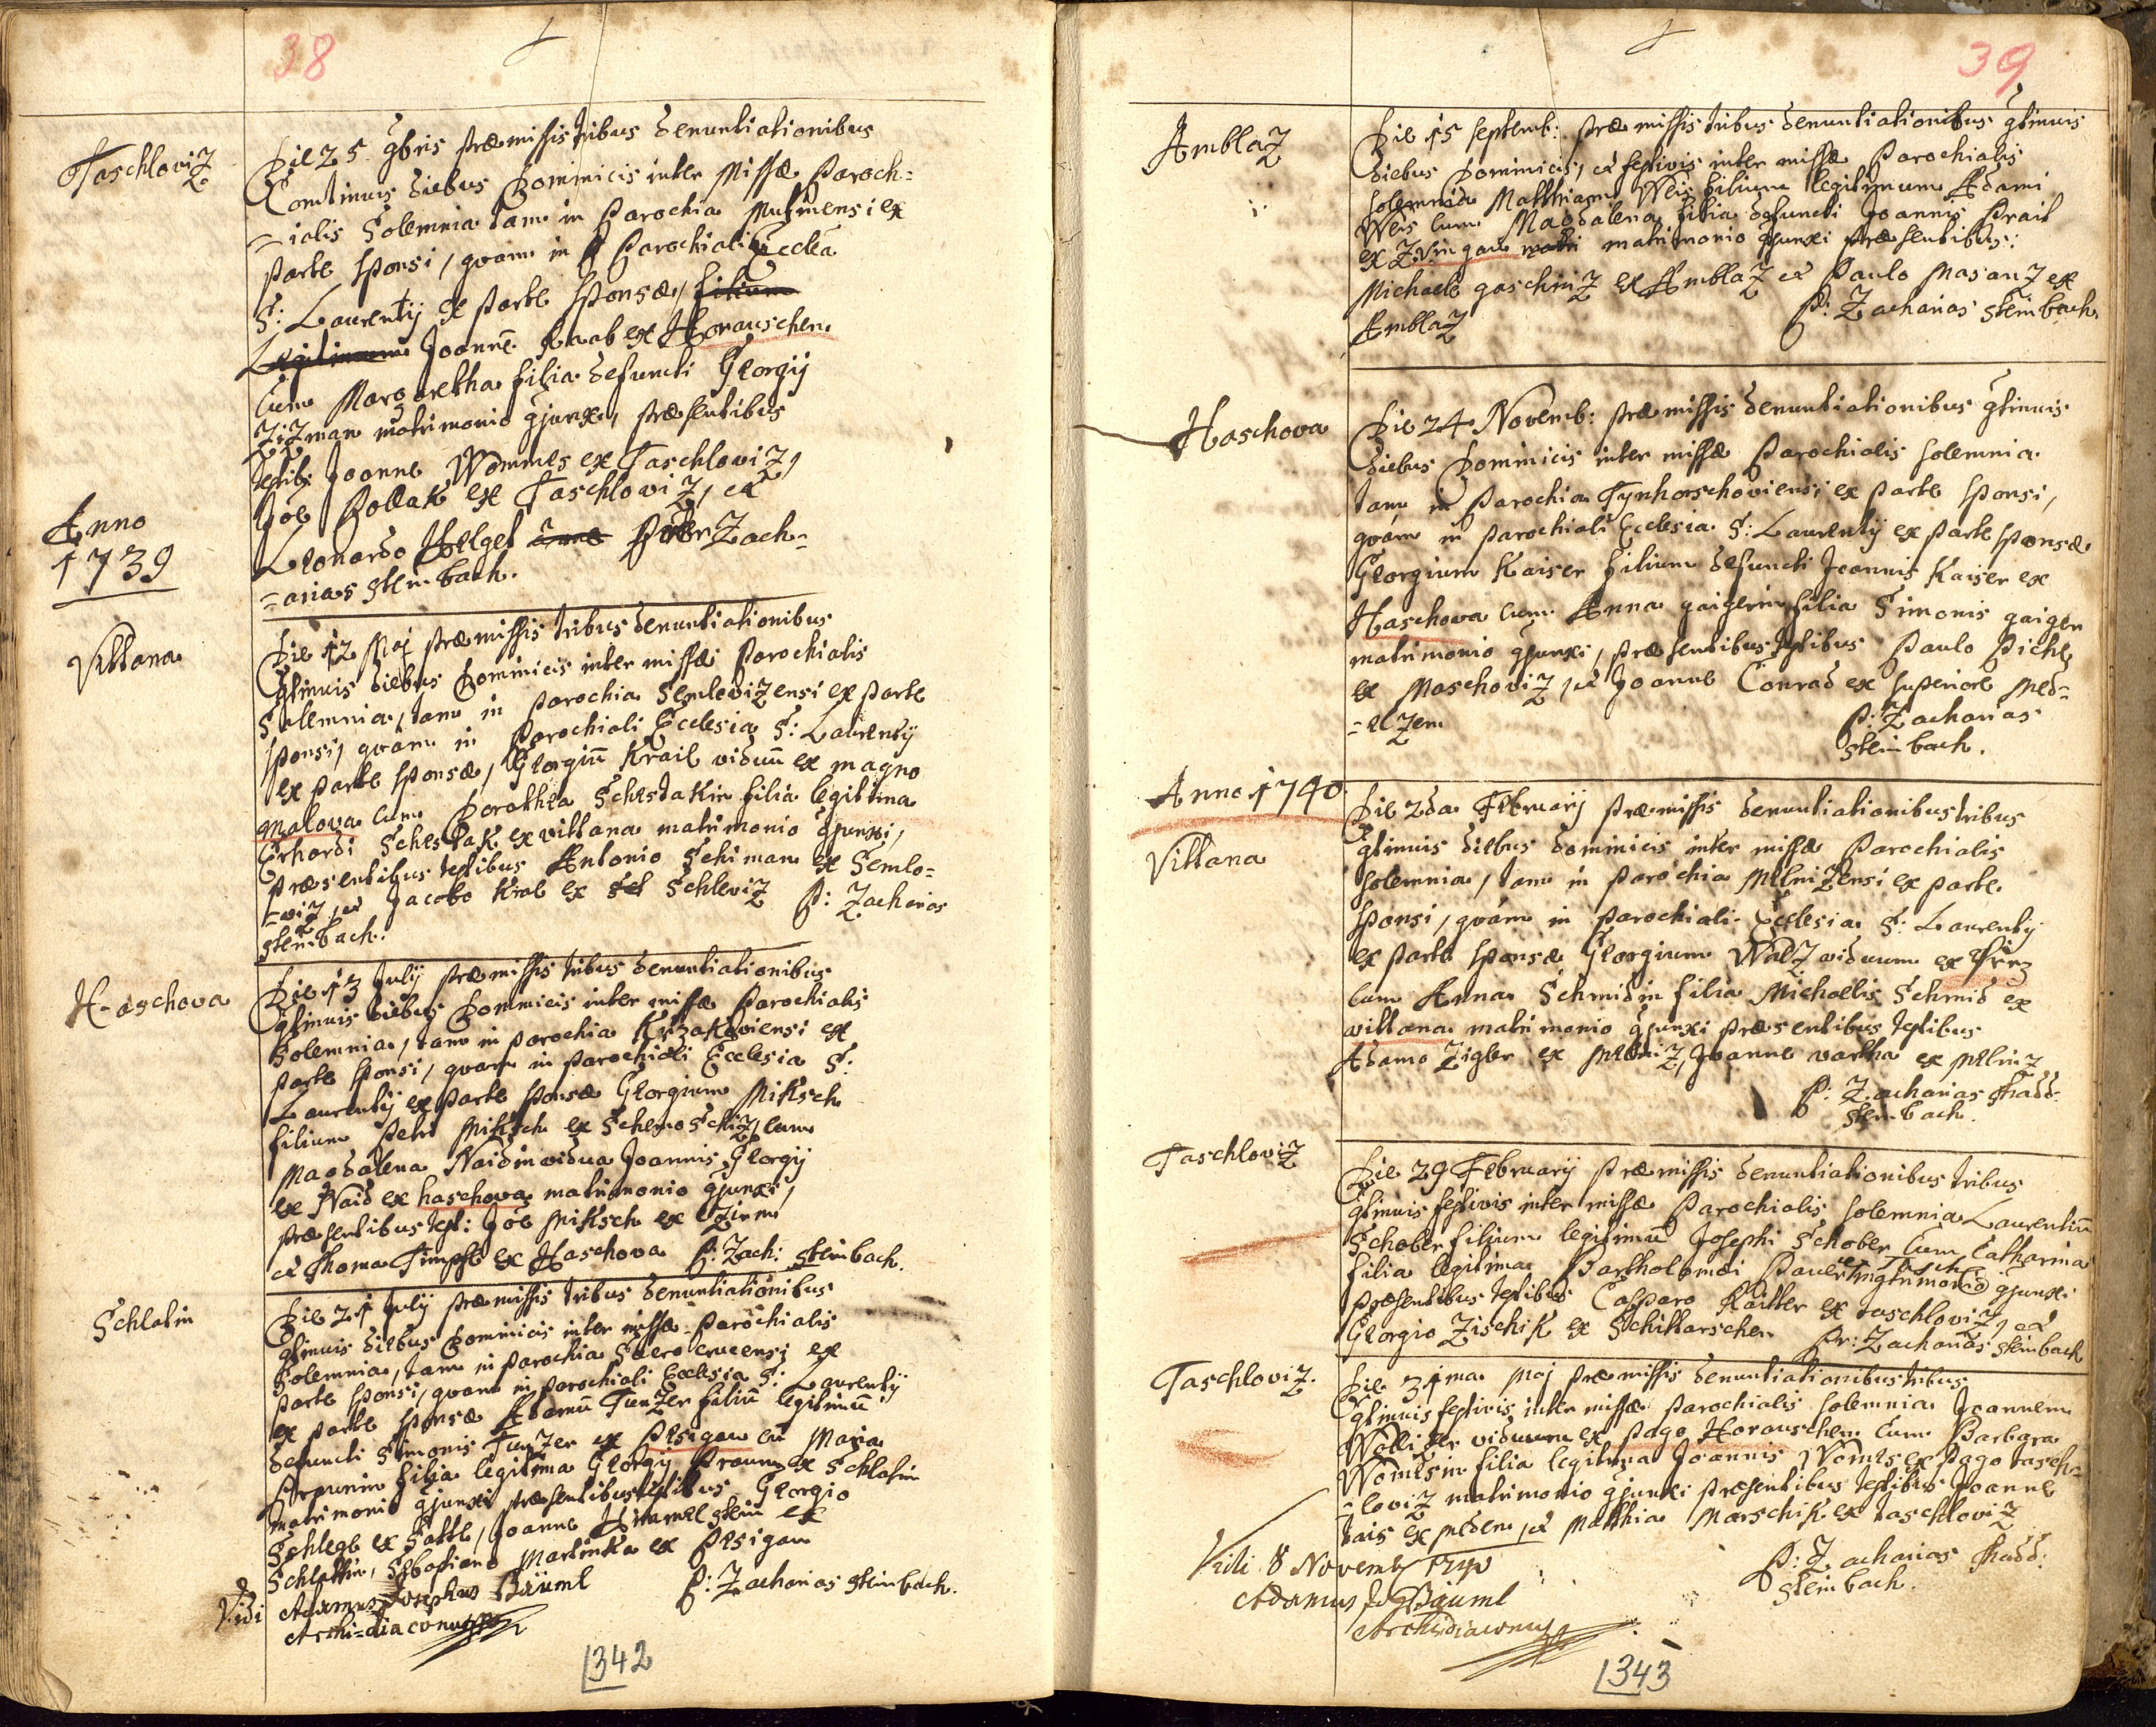 38
TaschloviZ
Die 25 9bris præmissis tribus denuntiationibus
Continuis diebus Dominicis inter Missæ Paroch=
=ialis Solemnia tam in Parochia Mutinensi ex
parte sponsi, qvam in Parochiali Eccleâ
S: Laurentij ex parte sponsæ, filium
Legitimum Joanne Raab ex Horauschen
Cum Margaretha filia defuncti Georgij
ZiZman matrimonio gjunxi, præsentibus
testibs Joanne Wommes ex TaschloviZ,
Joë Pollak ex TaschloviZ, et
Leonardo Helget Pater Zach=
=arias steinbach.
Anno
1739
Vittana
Die 12 Maj præmissis tribus denuntiationibus
gtinuis diebus Dominicis inter missæ Parochialis
Solemnia, tam in Parochia SemloviZensi ex parte
sponsi, qvam in Parochiali Ecclesia S: Laurentij
ex parte sponsæ, Georgiū Krail viduū ex magno
Malova cum Dorothea Schestakin filia legitima
Erhardi Schestak ex vittana matrimonio gjunxi,
præsentibus testibus Antonio Schiman ex Semlo=
=viZ, et Jacobo Kral ex Sch SchleviZ P: Zacharias
steinbach.
Haschova
Die 13 July præmissis tribus denuntiationibus
gtinuis diebus Dominicis inter missæ Parochialis
Solemnia, tam in parochia Krzakoviensi ex
parte sponsi, qvam in parochiali Ecclesia S:
Laurentij ex parte sponsæ Georgium Miksch
filium Petri Miksch ex SchemoSchiZ, cum
Magdalena Naidin vidua Joannis Georgij
ex Naid ex haschova matrimonio gjunxi,
præsentibus test: Joë Miksch ex Zirm
et Thoma Timpfl ex Haschova P: Zach: steinbach.
Schlatin
Die 21 July præmissis tribus denuntiationibus
gtinuis diebus Dominicis inter missæ Parochialis
Solemnia, tam in parochia Sacro Crucensi ex
parte sponsi, qvam in parochiali Ecclesia S: Laurentij
ex parte sponsæ Adamū TunZer filiū legitimū
defuncti Simonis TunZer ex Plsigau cū Maria
Praunin filia legitima Georgij Praun ex Schlatin
matrimonio gjunxi præsentibus testibus Georgio
Schlegl ex Sattl, Joanne Himmelstein ex
Schlattin, Sebastiano Martinka ex Plsigau
P: Zacharias steinbach.
Vidi Adamus Josephus Bäuml
Archi=diaconus
342
39
AmblaZ
Die 15 septemb: præmissis tribus denuntiationibus gtinuis
diebus Dominicis, et festivis inter missæ Parochialis
solemnia Matthiam Weis filium legitimum Adami
Weis cum Magdalena filia defuncti Joannis Prail
ex Zvingau matri matrimonio gjunxi præsentibus:
Michaele gaschniZ ex AmblaZ et Paulo MasauZ ex
AmblaZ P: Zacharias steinbach
Haschova
Die 24 Novemb: præmissis denuntiationibus gtinuis
diebus Dominicis inter missæ Parochialis solemnia
tam in Parochia Tynhorschoviensi ex parte sponsi,
qvám in parochiali Ecclesia S: Laurentij ex parte sponsæ
Georgium Kaiser filium defuncti Joannis Kaiser ex
Haschova cum Anna gaigerin filia Simonis gaiger
matrimonio gjunxi, præsentibus testibus Paulo Pichl
ex MaschoviZ, et Joanne Conrad ex superiore Med=
=elZen P: Zacharias
steinbach.
Anno 1740
Vittana
Die 2da February præmissis denuntiationibus tribus
gtinuis diebus dominicis inter missæ Parochialis
solemnia, tam in parochia MelniZensi ex parte
sponsi, qvám in parochiali Ecclesia S: Laurentij
ex parte sponsæ Georgium WalZ viduum ex
cum Anna Schmidin filia Michaelis Schmid ex
vittana matrimonio gjunxi præsentibus testibus
Adamo Zigler ex MelniZ, Joanne vartha ex MelniZ
P: Zacharias Thadd:
steinbach.
TaschloviZ
Die 29 February præmissis denuntiationibus tribus
gtinuis festivis inter missæ Parochialis solemnia Laurentiū
Schober filium legitimū Josephi Schober Cum Catharina
filia legitima Bartholomæi matrimonio gjunxi
præsentibus testibus Casparo Raitter ex taschloviZ, et
Georgio Zischik ex Schittarschen Pr: Zacharias steinbach
TaschloviZ.
Die 31ma Maj præmissis denuntiationibus tribus
gtinuis festivis inter missæ parochialis solemnia Joannem
viduum ex pago Horauschen Cum Barbara
Womesin filia legitima Joannis Womes ex Pago tasch=
=loviZ matrimonio gjunxi præsentibus testibus Joanne
tais ex Meden, et Matthia Marschik ex taschloviZ
P: Zacharias Thadd:
steinbach.
Vidi 8 Novemb 1740
Adamus Jos Bäuml
Archidiaconus
343